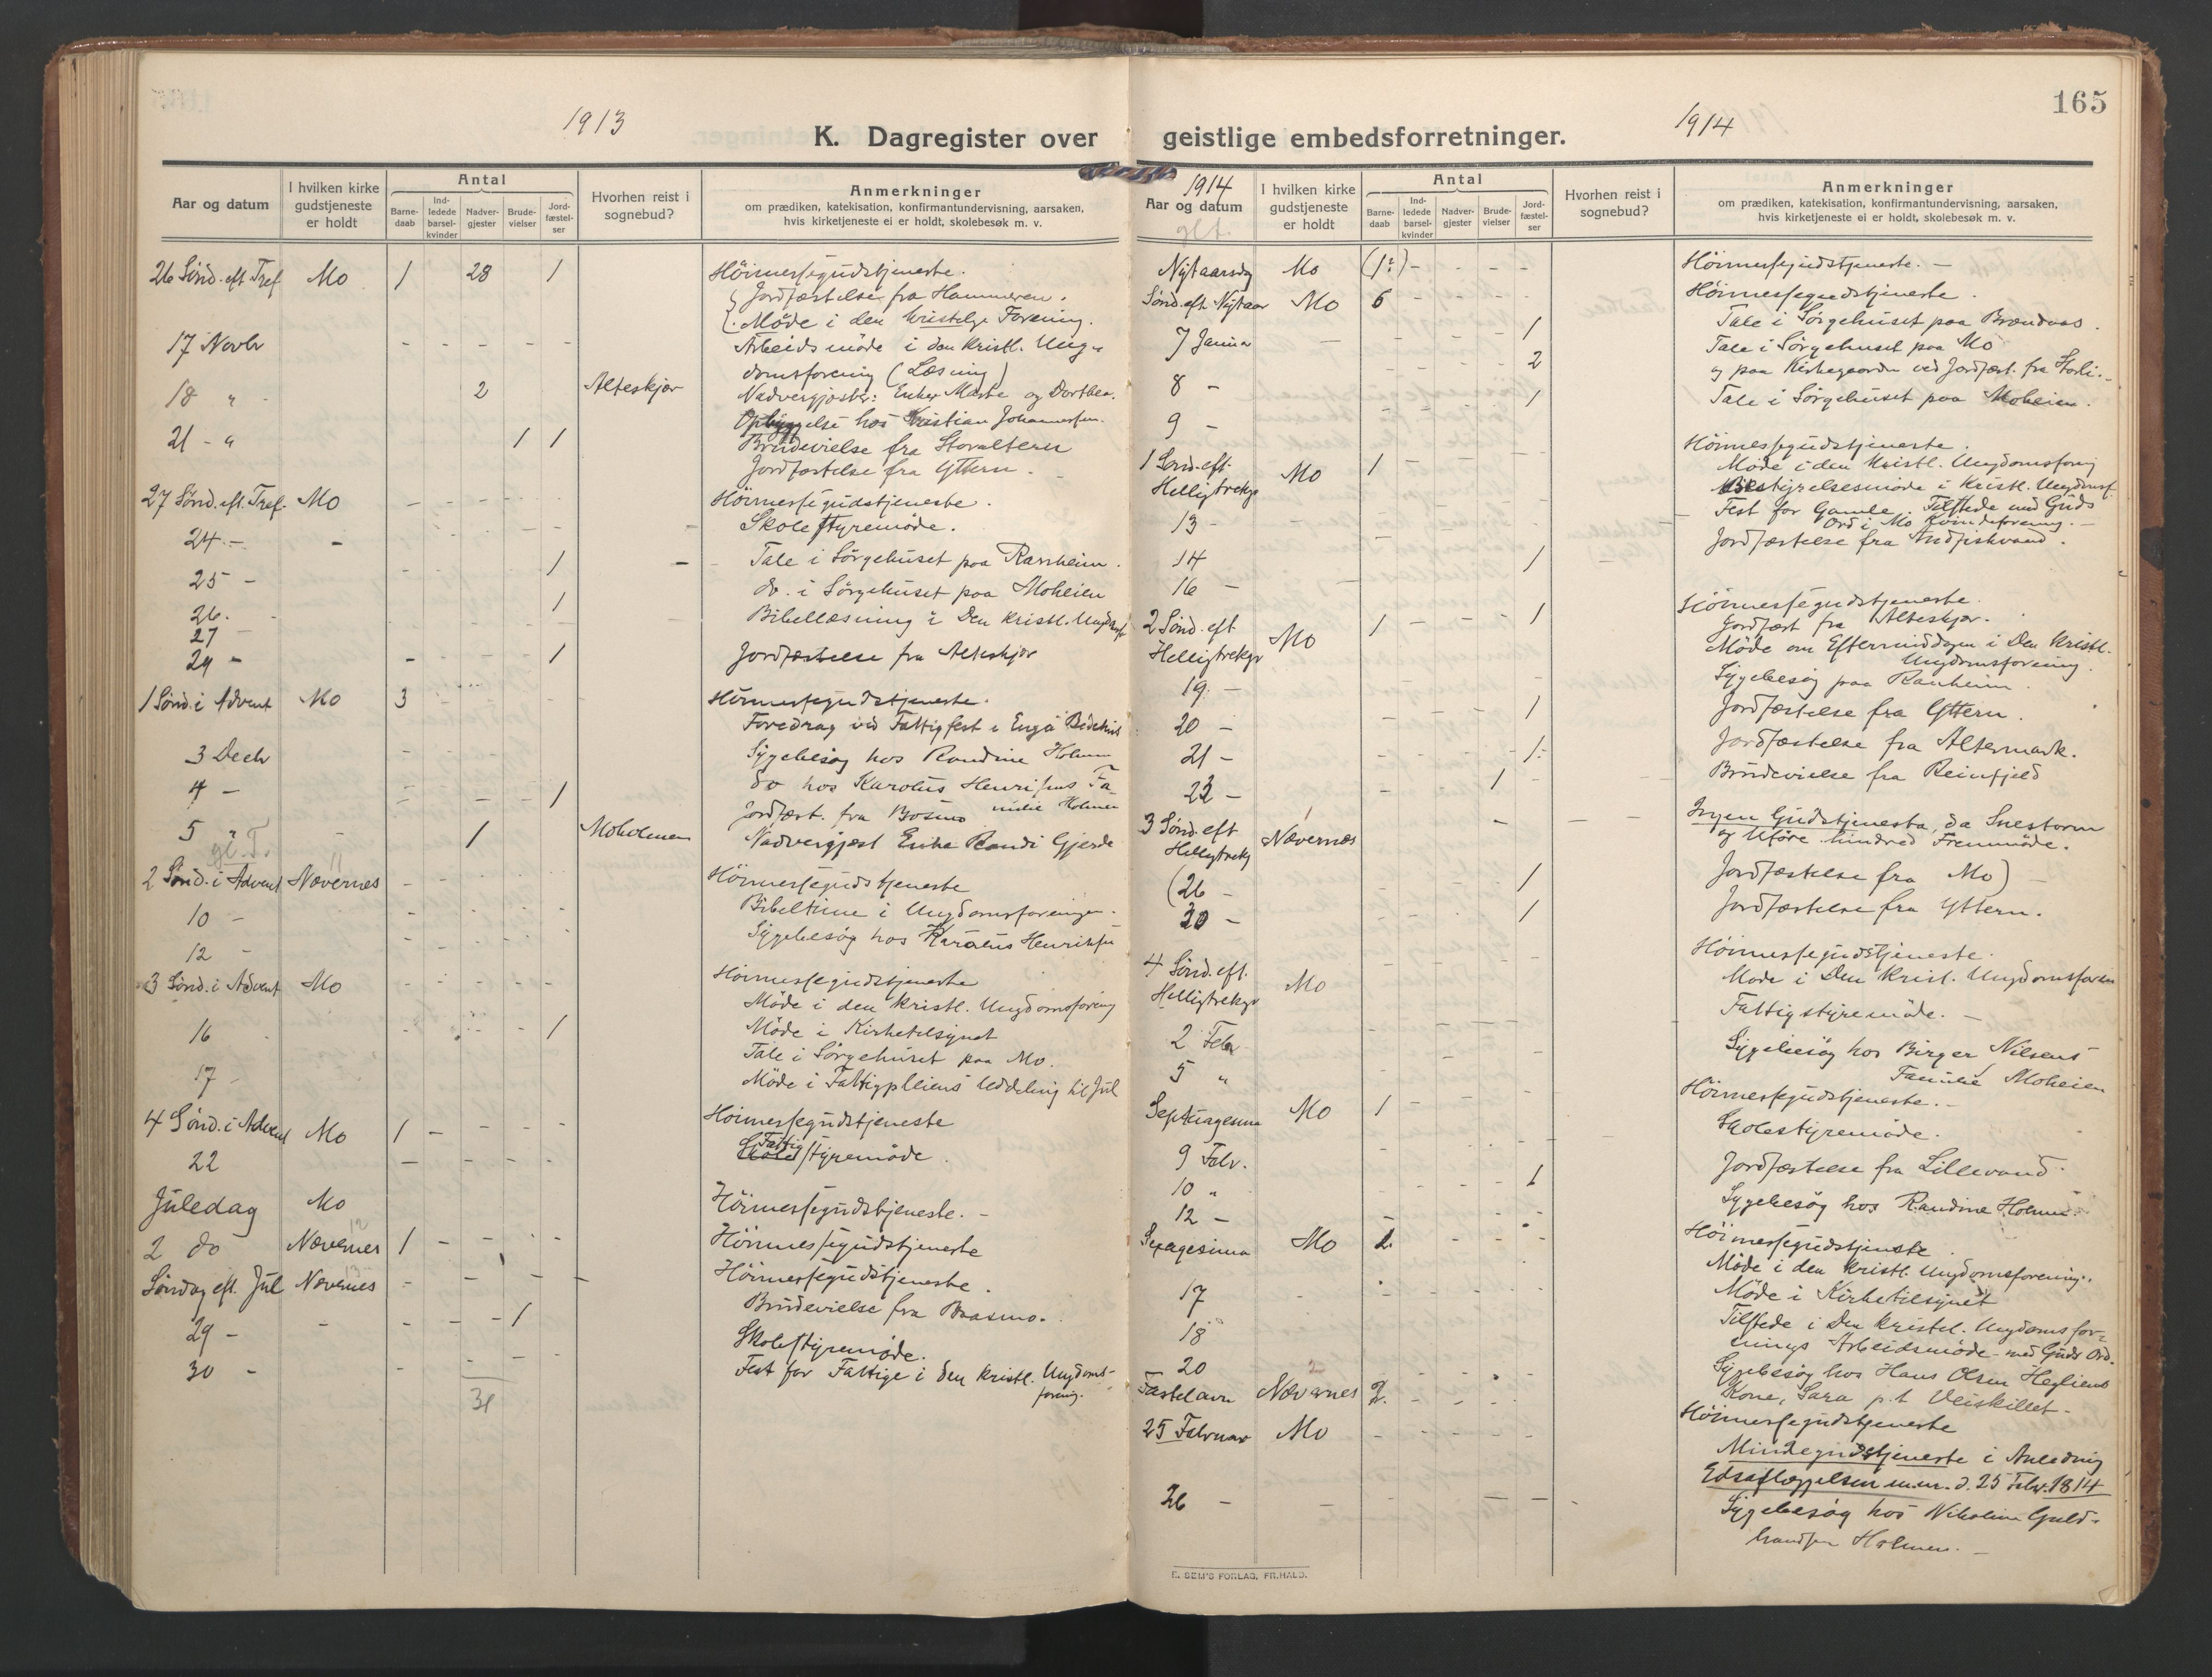 165
1913
1914
K. Dagregister over geistlige embedsforretninger.
Aar og datum
I hvilken kirke gudstjeneste er holdt
Antal
Barnedaab
Indledede barselkvinder
Nadvergjester
Brudevielser
Jordfæstelser
Hvorhen reist i sognebud?
Anmerkninger
om prædiken, katekisation, konfirmantundervisning, aarsaken,
hvis kirketjeneste ei er holdt, skolebesøk m. v.
26 Sønd. eft Tref Mo 1 28 1 Høimessegudstjeneste.
Jordfæstelse fra Hammeren.
Møde i den kristelige Forening.
17 Novbr - - - - - Arbeidsmøde i den kristl. Ung-
domsforening (Læsning)
18 " 2 Alteskjær Nadvergjester: Enker Marte og Dorthea.
Opbyggelse hos Kristian Johannessen.
21 - " 1 1 Brudevielse fra Storalteren
Jordfæstelse fra Yttern.
27 Sønd. eft. Tref. Mo - - - - - Høimessegudstjeneste.
24 - - Skolestyremøde.
25 - 1 - Tale i Sørgehuset paa Ranheim.
26. 1 do. i Sørgehuset paa Moheien
27 - Bibellæsning i Den kristl. Ungdsf
29 - 1 Jordfæstelse fra Alteskjær
1 Sønd. i Advent Mo 3 Høimessegudstjeneste.
Foredrag ved Fattigfest i Enga Bedehus
3 Decbr Sygebesøg hos Randine Holmen
do hos Karolus Henriksens Fa-
milie Holmen
4 - 1 Jordfæst. fra Bosmo
5 1 Moholmen Nadvergjest Enke Randi Gjerde
gl. T.
2 Sønd. i Advent Nævernes 11 Høimessegudstjeneste
10 - Bibeltime i Ungdomsforeningen.
12 - Sygebesøg hos Karolus Henriksen
3 Sønd. i Advent Mo Høimessegudstjeneste
Møde i den kristl. Ungdomsforening
16 1 Møde i Kirketilsynet
Tale i Sørgehuset paa Mo.
17 - Møde i Fattigpleiens Uddeling til Jul
4 Sønd. i Advent Mo 1 - - - - Høimessegudstjeneste
22 - - - - - Fattigstyremøde.
Juledag Mo Høimessegudstjeneste. -
2 do Nævernes 12 1 - - - - Høimessegudstjeneste
Søndag eft. Jul Nævernes 13 - - - - - Høimessegudstjeneste.
29 - - - - - 1 Brudevielse fra Baasmo.
30 - Skolestyremøde.
Fest for Fattige i den kristl. Ungdoms-
forening.
31
1914
Aar og datum
glt.
I hvilken kirke gudstjeneste er holdt
Antal
Barnedaab
Indledede barselkvinder
Nadvergjester
Brudevielser
Jordfæstelser
Hvorhen reist i sognebud?
Anmerkninger
om prædiken, katekisation, konfirmantundervisning, aarsaken,
hvis kirketjeneste ei er holdt, skolebesøk m. v.
Nytaarsdg Mo (1:) - - - - Høimessegudstjeneste. -
Sønd. eft Nytaar Mo 6 - - - - Høimessegudstjeneste.
7 Janua - 1 Tale i Sørgehuset paa Brændaas.
8 - 2 Tale i Sørgehuset paa Mo
og paa Kirkegaarden ved Jordfæst. fra Storli.
9 - 1 Tale i Sørgehuset paa Moheien.
1 Sønd. eft.
Helligtrekgr Mo 1 - - - - Høimessegudstjeneste.
Møde i den kristl. Ungdomsforeng
13 - Bestyrelsesmøde i kristl. Ungdomsf.
14 Fest for Gamle. Tilstede med Guds
Ord i Mo Kvindeforening. -
16 - 1 Jordfæstelse fra Andfiskvand.
2 Sønd. eft
Helligtrekgr Mo 1 - - - 1 Høimessegudstjeneste.
Jordfæst fra Alteskjær.
Møde om Eftermiddagen i Den kristl.
Ungdomsforening.
19. - Sygebesøg paa Ranheim.
20 - 1 Jordfæstelse fra Yttern.
21 - 1. Jordfæstelse fra Altermark.
23 - 1 - Brudevielse fra Reinfjeld
3 Sønd. eft
Helligtrekg Nævernes 1 Ingen Gudstjeneste, da Snestorm
og Uføre hindred Fremmøde.
(26 - 1 Jordfæstelse fra Mo) -
30 - 1 Jordfæstelse fra Yttern.
4 Sønd. eft.
Helligtrekgr Mo Høimessegudstjeneste.
Møde i Den kristl. Ungdomsforen
2 Febr Fattigstyremøde. -
5 " Sygebesøg hos Birger Nilsens
Familie Moheien
Septuagesima Mo 1 - Høimessegudstjeneste. -
9 Febr. Skolestyremøde.
10 " 1 Jordfæstelse fra Lillevand.
12 - Sygebesøg hos Randine Holmen.
Sexagesima Mo 2 Høimessegudstjeneste.
Møde i den kristl. Ungdomsforening.
17 Møde i Kirketilsynet
18 Tilstede i Den kristel. Ungdomsfor-
enings Arbeidsmøde med Guds Ord.
20 Sygebesøg hos Hans Olsen Hegliens
Kone, Sara p.t Veiskillet.
Fastelavn Nævernes 2 2. Høimessegudstjeneste
25 Februar Mo Mindegudstjeneste i Anledning
Edsaflæggelsen m.m. d. 25 Febr. 1814
26 - Sygebesøg hos Nikoline Guld-
brandsen Holmen. -
E. SEM'S FORLAG, FR.HALD.